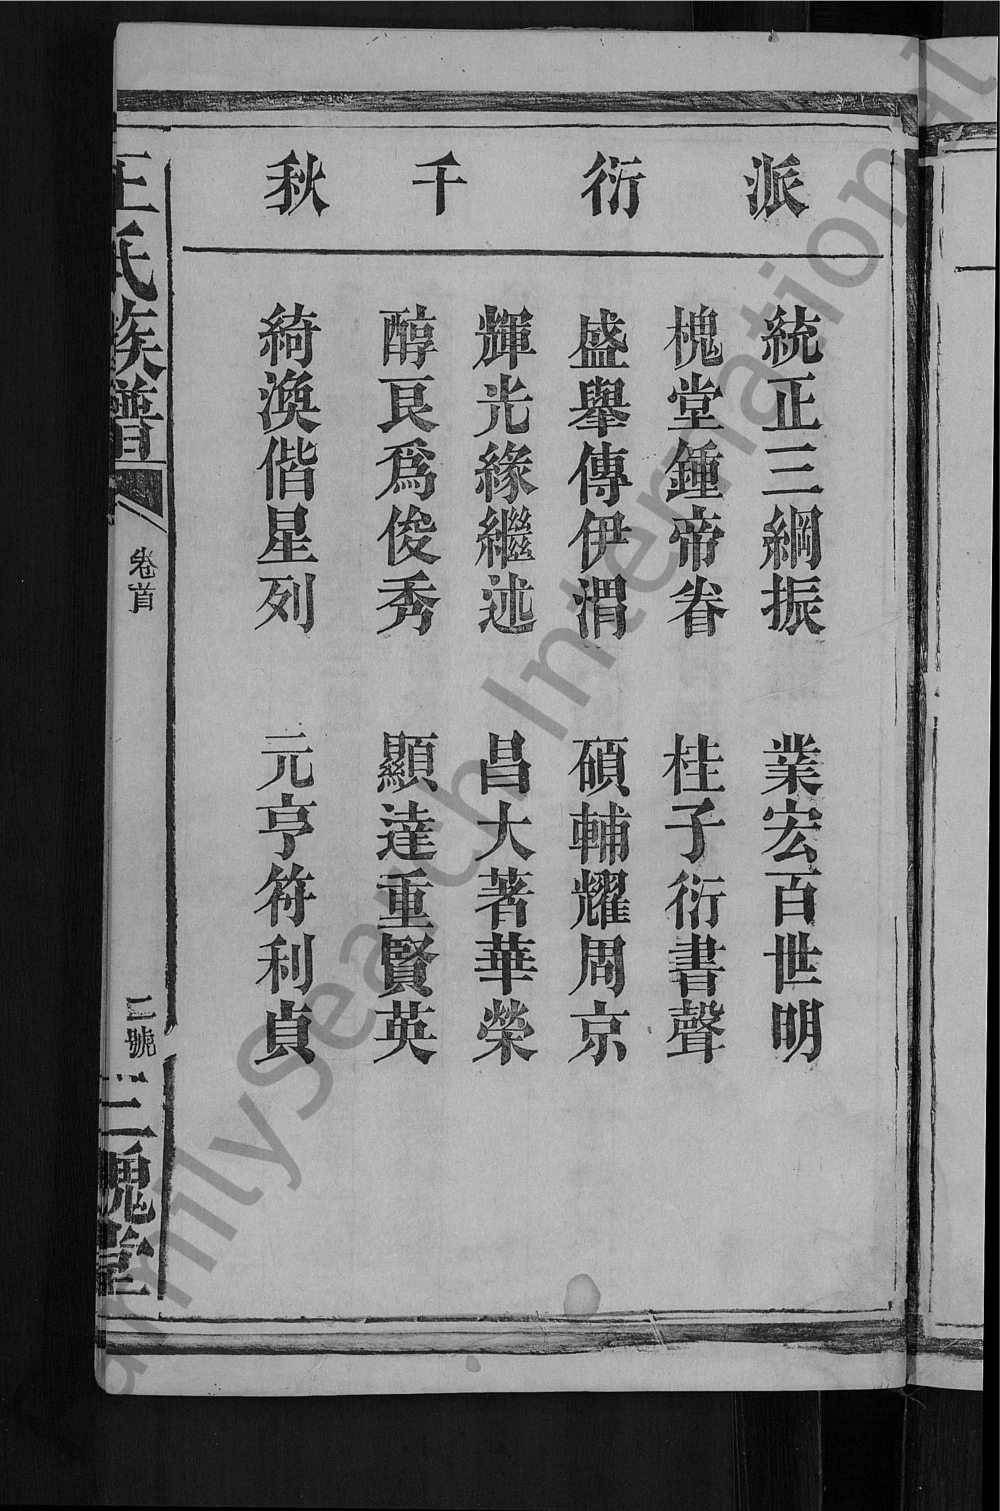 派衍千秋
統正三綱振 業宏百世明
槐堂鍾帝眷 桂子衍書聲
盛舉傳伊渭 碩輔耀周京
輝光緣繼述 昌大著華榮
醇良爲俊秀 顯達重賢英
綺渙偕星列 元亨符利貞
王氏族譜
卷首
二號
三槐堂
FamilySearch International